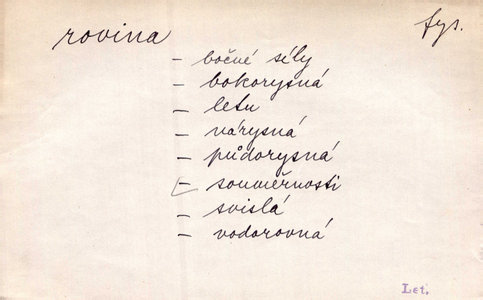 rovina
fys.
– bočné síly
– bokorysná
– letu
– nárysná
– půdorysná
– souměrnosti
– svislá
– vodorovná
Let.